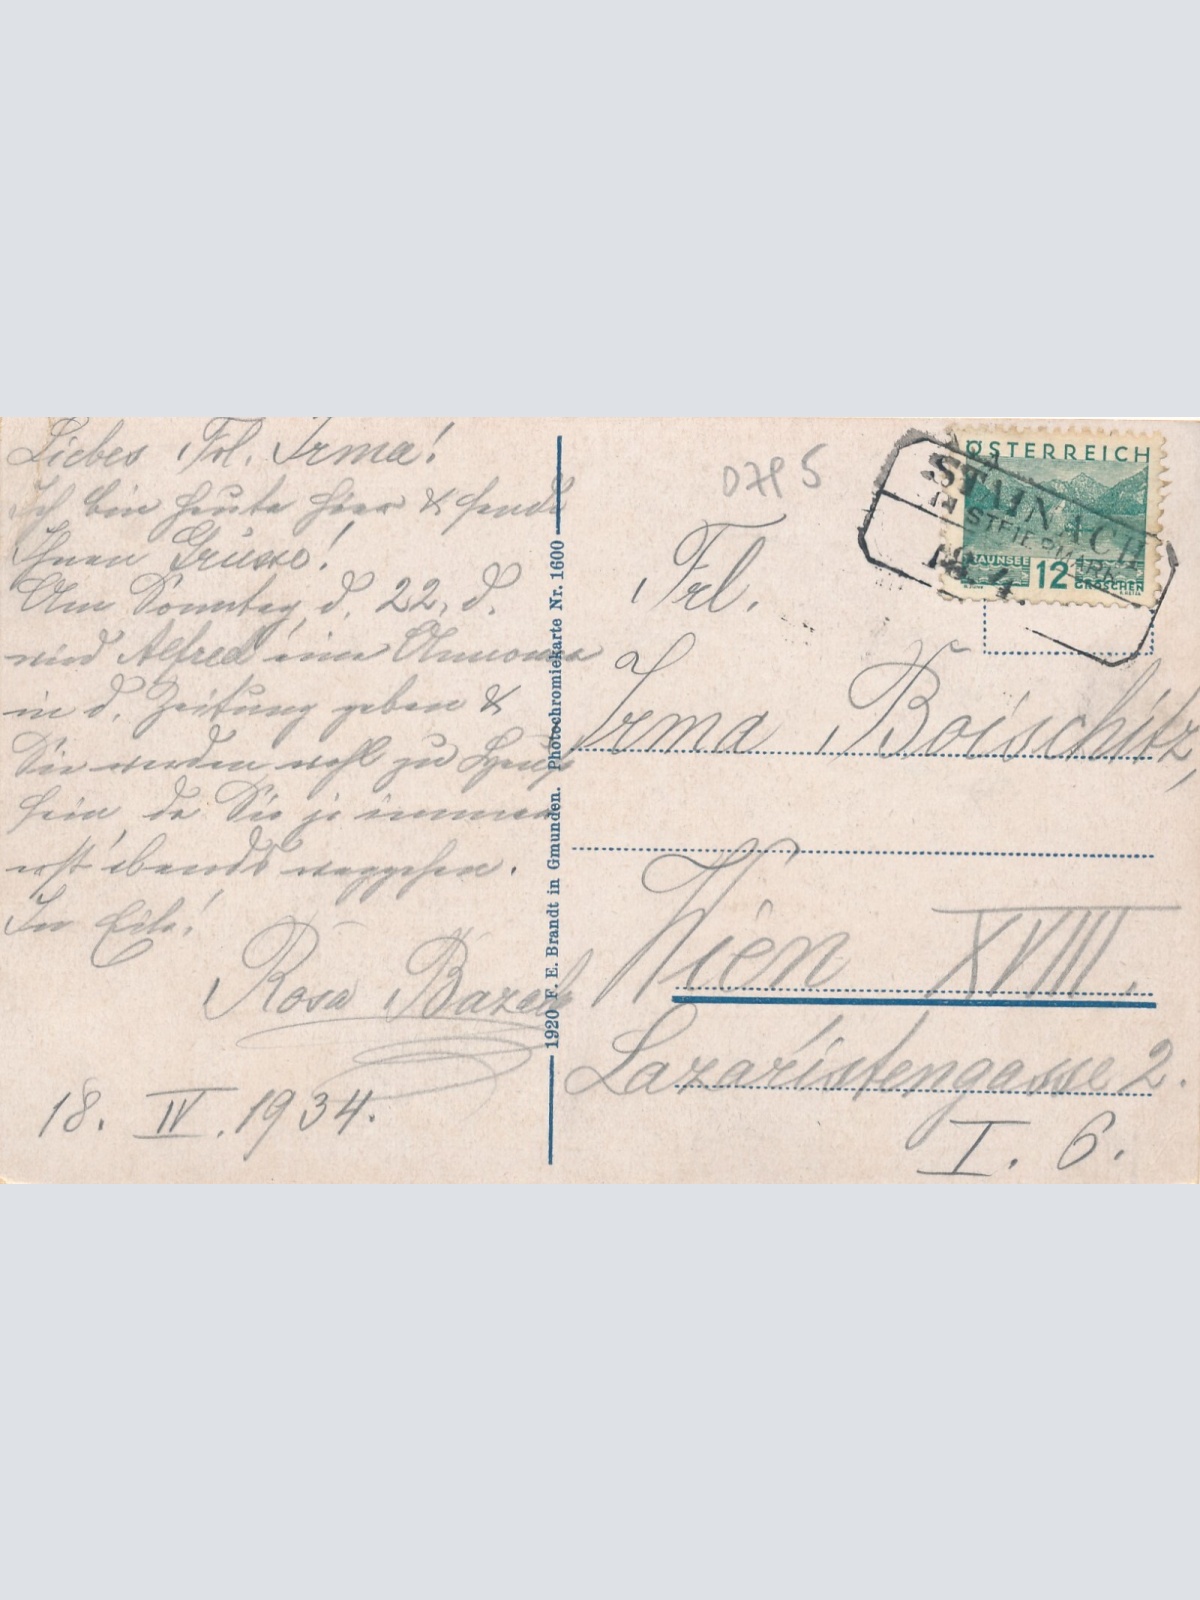 Liebes Frl. Irma!
Ich bin heute hier & sende
Ihnen Grüsse!
Am Sonntag, d. 22. d.
wird Alfred eine Annonce
in d. Zeitung geben &
Sie werden wohl zu Haus
sein, da Sie ja immer
erst abends weggehen.
In Eile!
Rosa Bazek
18. IV. 1934.
1920 F. E. Brandt in Gmunden. Photochromiekarte Nr. 1600
ÖSTERREICH
TRAUNSEE 12 GROSCHEN
STAINACH
STEIERMARK
18. 4.
Frl.
Irma Boischitz,
Wien XVIII.
Lazaristengasse 2.
I. 6.